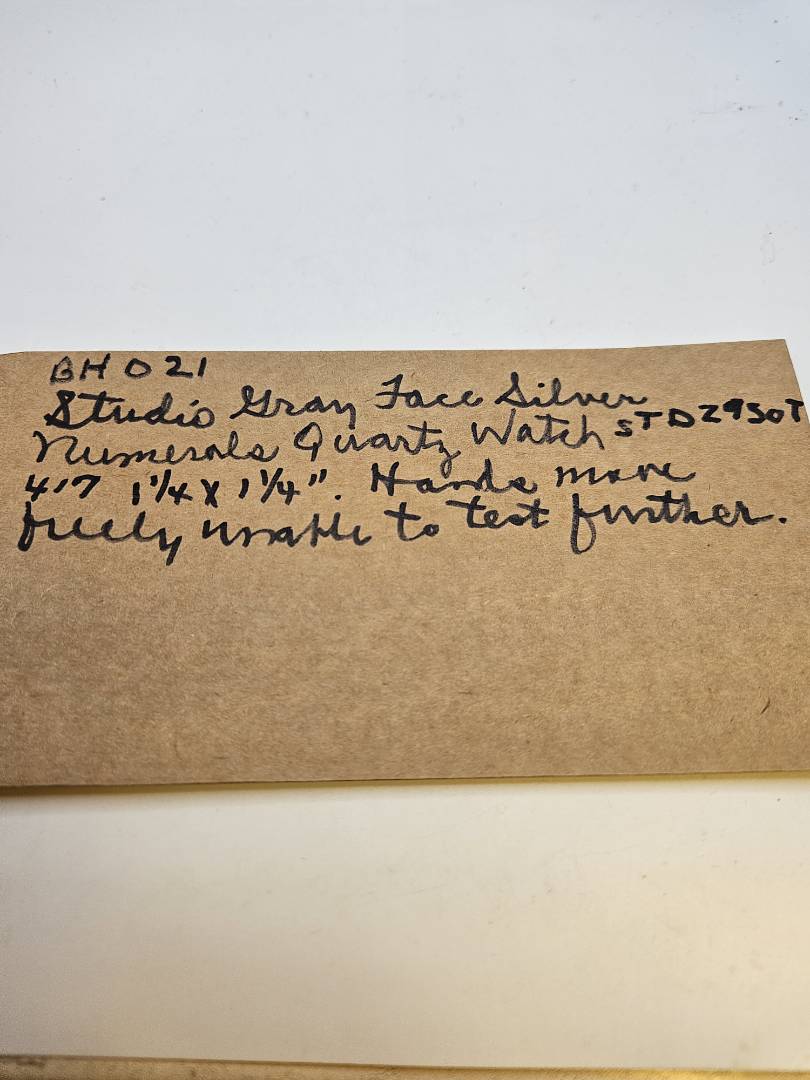 BH 021
Studio Gray Face Silver
Numerals Quartz Watch STDZ9SOT
417 1 1/4 X 1 1/4". Hands move
freely unable to test further.